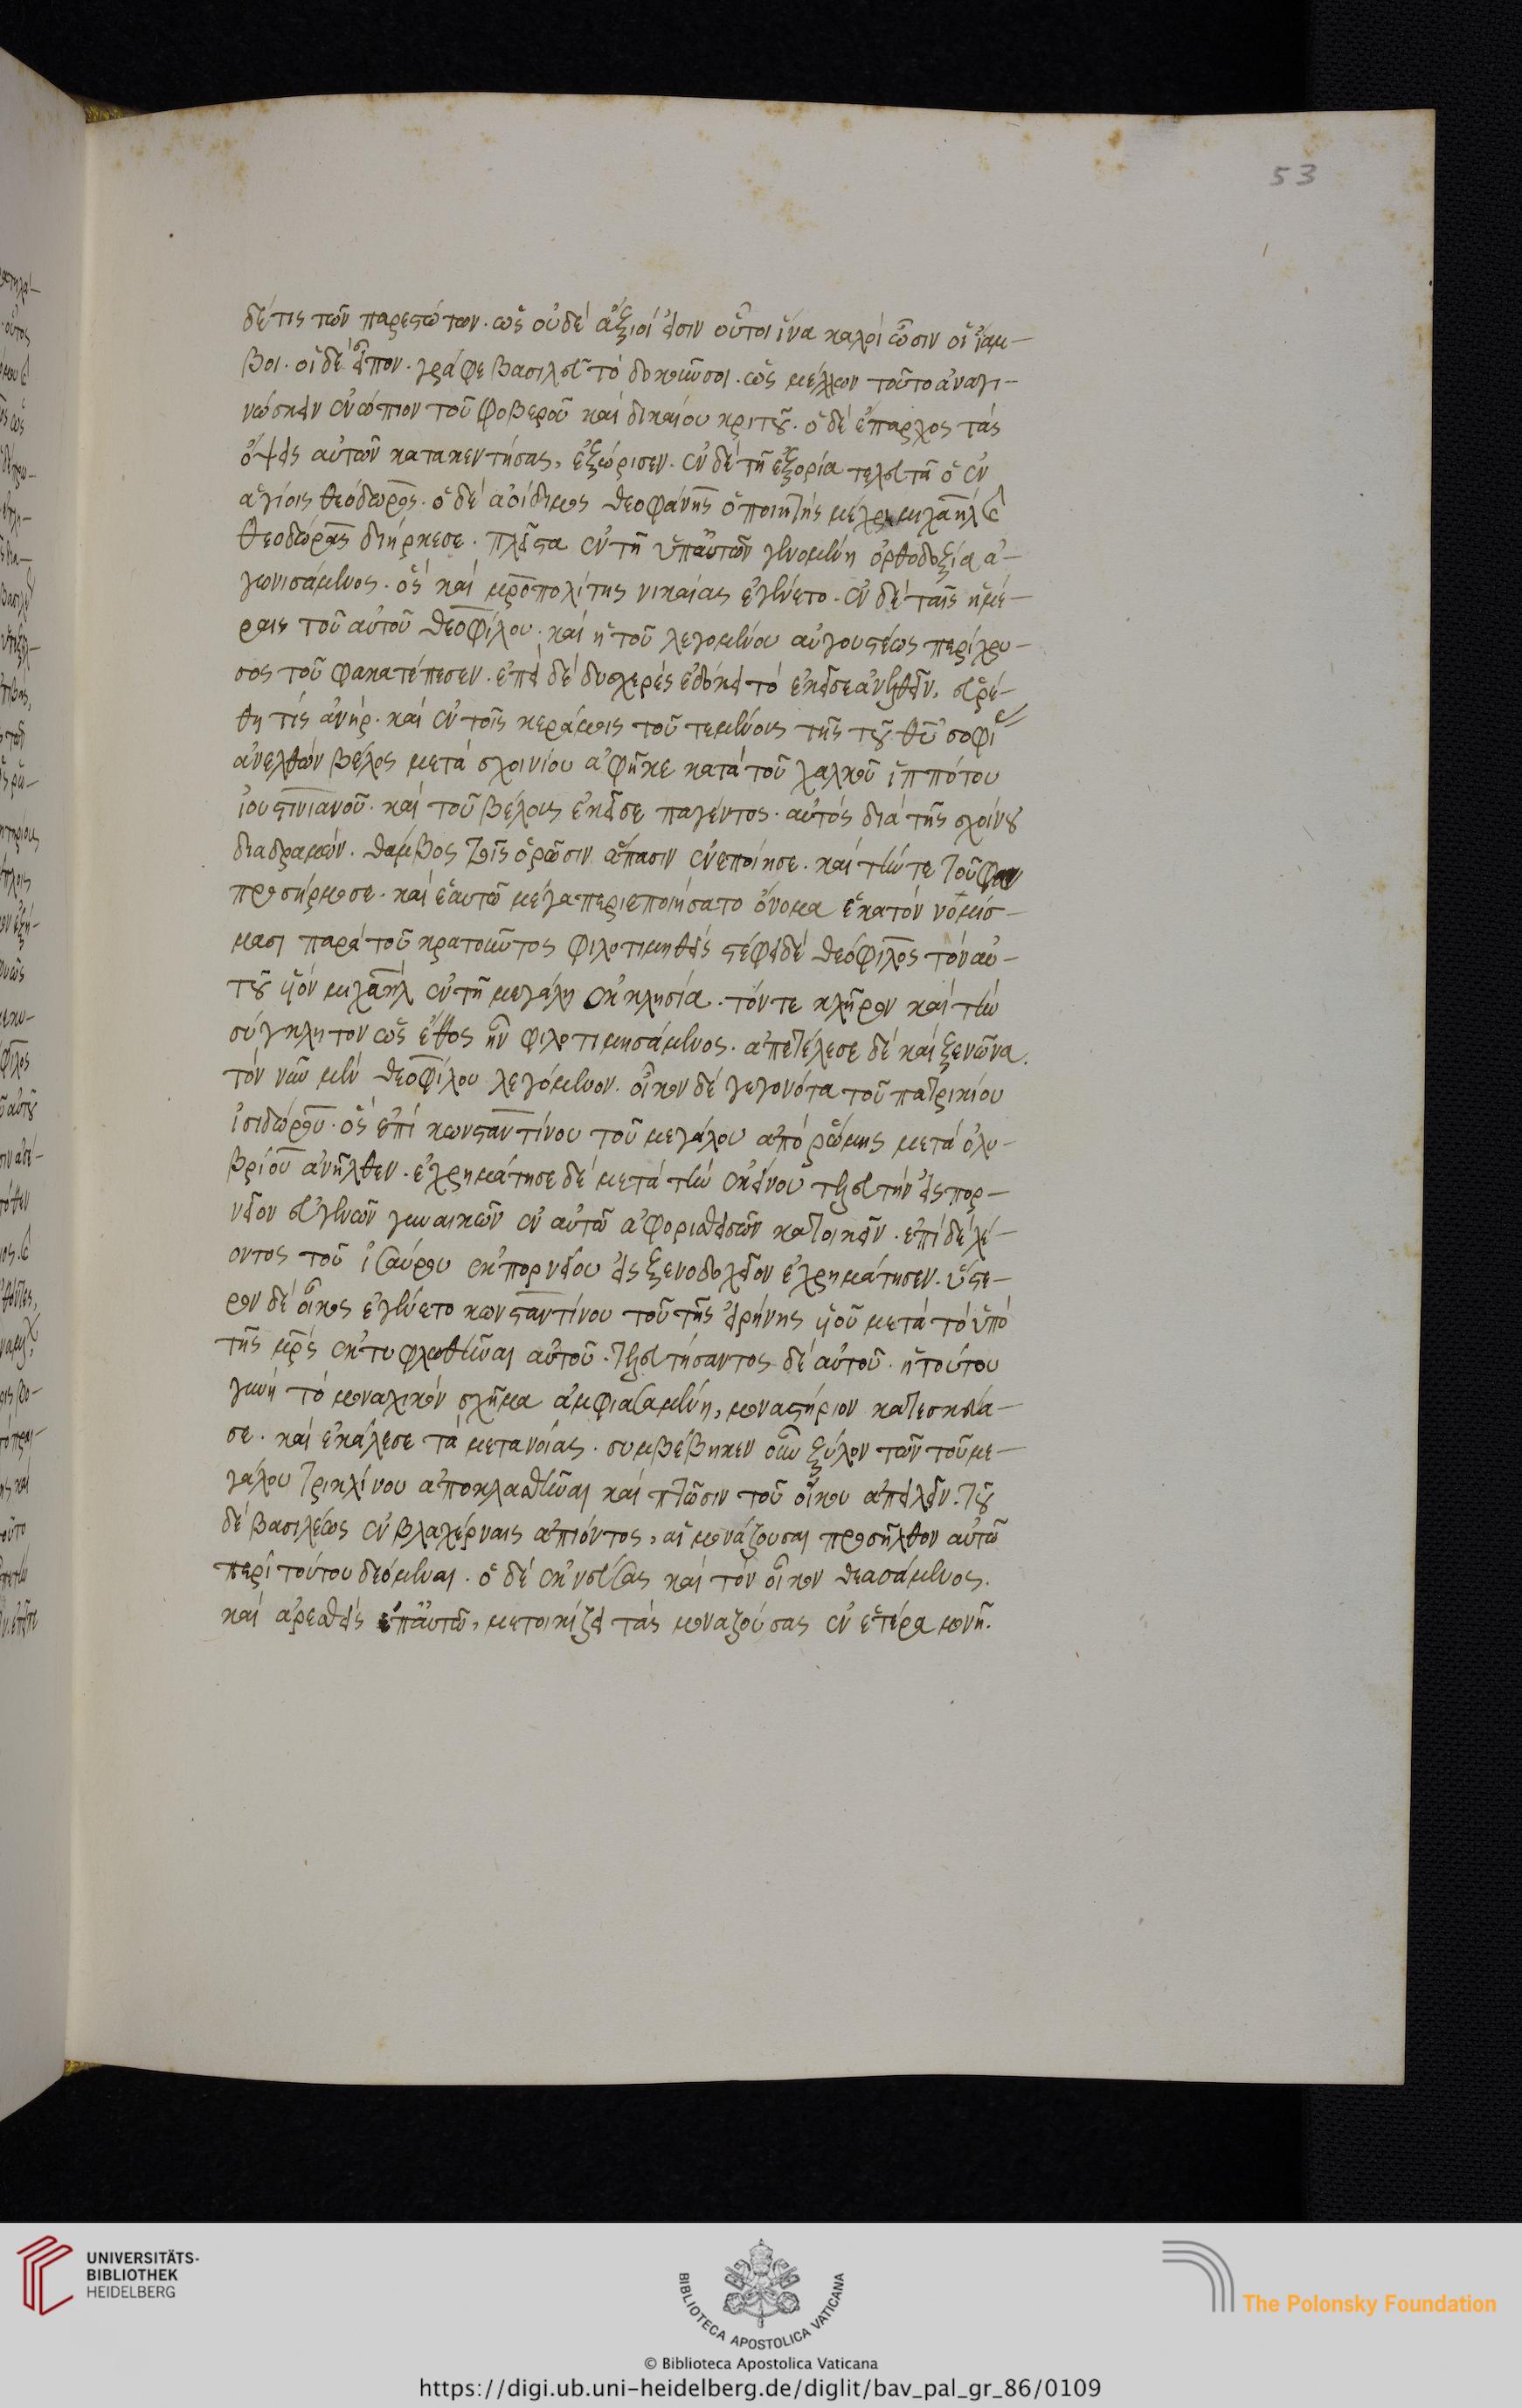 53
δέ τις τῶν παρεστώτων· ὡς οὐδέ ἄξιοί εἰσιν οὗτοι ἵνα καλοί ὦσιν οἱ ἴαμ-
βοι· οἱ δέ εἶπον· γράφε βασιλεῦ τό δοκοῦν σοι· ὡς μέλλων τοῦτο ἀναγι-
νώσκειν ἐνώπιον τοῦ φοβεροῦ καί δικαίου κριτοῦ· ὁ δέ ἔπαρχος τάς
ὄψεις αὐτῶν κατακεντήσας, ἐξώρισεν· ἐν δέ τῇ ἐξορία τελευτᾶ ὁ ἐν
ἁγίοις θεόδωρος· ὁ δέ ἀοίδιμος θεοφάνης ὁ ποιητής μέχρι μιχαήλ καὶ
θεοδώρας διήρκεσε· πλεῖστα ἐν τῇ ὑπ' αὐτῶν γενομένη ὀρθοδοξία ἀ-
γωνισάμενος· ὅς καί μροπολίτης νικαίας ἐγένετο· ἐν δέ ταῖς ἡμέ-
ραις τοῦ αὐτοῦ θεοφίλου· καί ἡ τοῦ λεγομένου αὐγουστέως περίχρυ-
σος τοῦφα κατέπεσεν· ἐπεί δέ δυσχερές ἐδόκει τό ἐκεῖσε ἀνελθεῖν, εὑρέ-
θη τίς ἀνήρ· καί ἐν τοῖς κεράμοις τοῦ τεμένους τῆς τοῦ θυ σοφίας
ἀνελθών βέλος μετά σχοινίου ἀφῆκε κατά τοῦ χαλκοῦ ἱππότου
ἰουστινιανοῦ· καί τοῦ βέλους ἐκεῖσε παγέντος· αὐτός διά τῆς σχοίνου
διαδραμών· θάμβος τοῖς ὁρῶσιν ἅπασιν ἐνεποίησε· καί τήν τε τοῦφαν
προσήρμοσε· καί ἑαυτῶ μέγα περιεποιήσατο ὄνομα ἑκατόν νομίσ-
μασι παρά τοῦ κρατοῦντος φιλοτιμηθείς στέφει δέ θεόφιλος τόν αὐ-
τοῦ υἱόν μιχαήλ ἐν τῇ μεγάλη ἐκκλησία· τόν τε κλῆρον καί τήν
σύγκλητον ὡς ἔθος ἦν φιλοτιμησάμενος· ἀπετέλεσε δέ καί ξενῶνα
τόν νῦν μέν θεοφίλου λεγόμενον· οἶκον δέ γεγονότα τοῦ πατρικίου
ἰσιδώρου· ὅς ἐπί κωνσταντίνου τοῦ μεγάλου ἀπό ῥώμης μετά ὀλυ-
βρίου ἀνῆλθεν· ἐχρημάτησε δέ μετά τήν ἐκείνου τελευτήν εἰς πορ-
νεῖον εὐγενῶν γυναικῶν ἐν αὐτῶ ἀφορισθεισῶν κατοικεῖν· ἐπί δέ λέ-
οντος τοῦ ἰσαύρου ἐκ πορνείου εἰς ξενοδοχεῖον ἐχρημάτησεν· ὕστε-
ρον δέ οἶκος ἐγένετο κωνσταντίνου τοῦ τῆς εἰρήνης υἱοῦ μετά τό ὑπό
τῆς μρς ἐκτυφλωθῆναι αὐτοῦ· τελευτήσαντος δέ αὐτοῦ· ἡ τούτου
γυνή τό μοναχικόν σχῆμα ἀμφιασαμένη, μοναστήριον κατεσκεύα-
σε· καί ἐκάλεσε τά μετανοίας· συμβέβηκεν οὖν ξύλον τῶν τοῦ με-
γάλου τρικλίνου ἀποκλασθῆναι καί πτῶσιν τοῦ οἴκου ἀπειλεῖν· τοῦ
δέ βασιλέως ἐν βλαχέρναις ἀπιόντος, αἱ μονάζουσαι προσῆλθον αὐτῶ
περί τούτου δεόμεναι· ὁ δέ ἐκνεύσας καί τόν οἶκον θεασάμενος·
καί ἀρεσθείς ἐπ' αὐτῶ, μετοικίζει τάς μοναζούσας ἐν ἑτέρα μονῇ·
UNIVERSITÄTS-
BIBLIOTHEK
HEIDELBERG
BIBLIOTECA APOSTOLICA VATICANA
© Biblioteca Apostolica Vaticana
The Polonsky Foundation
https://digi.ub.uni-heidelberg.de/diglit/bav_pal_gr_86/0109